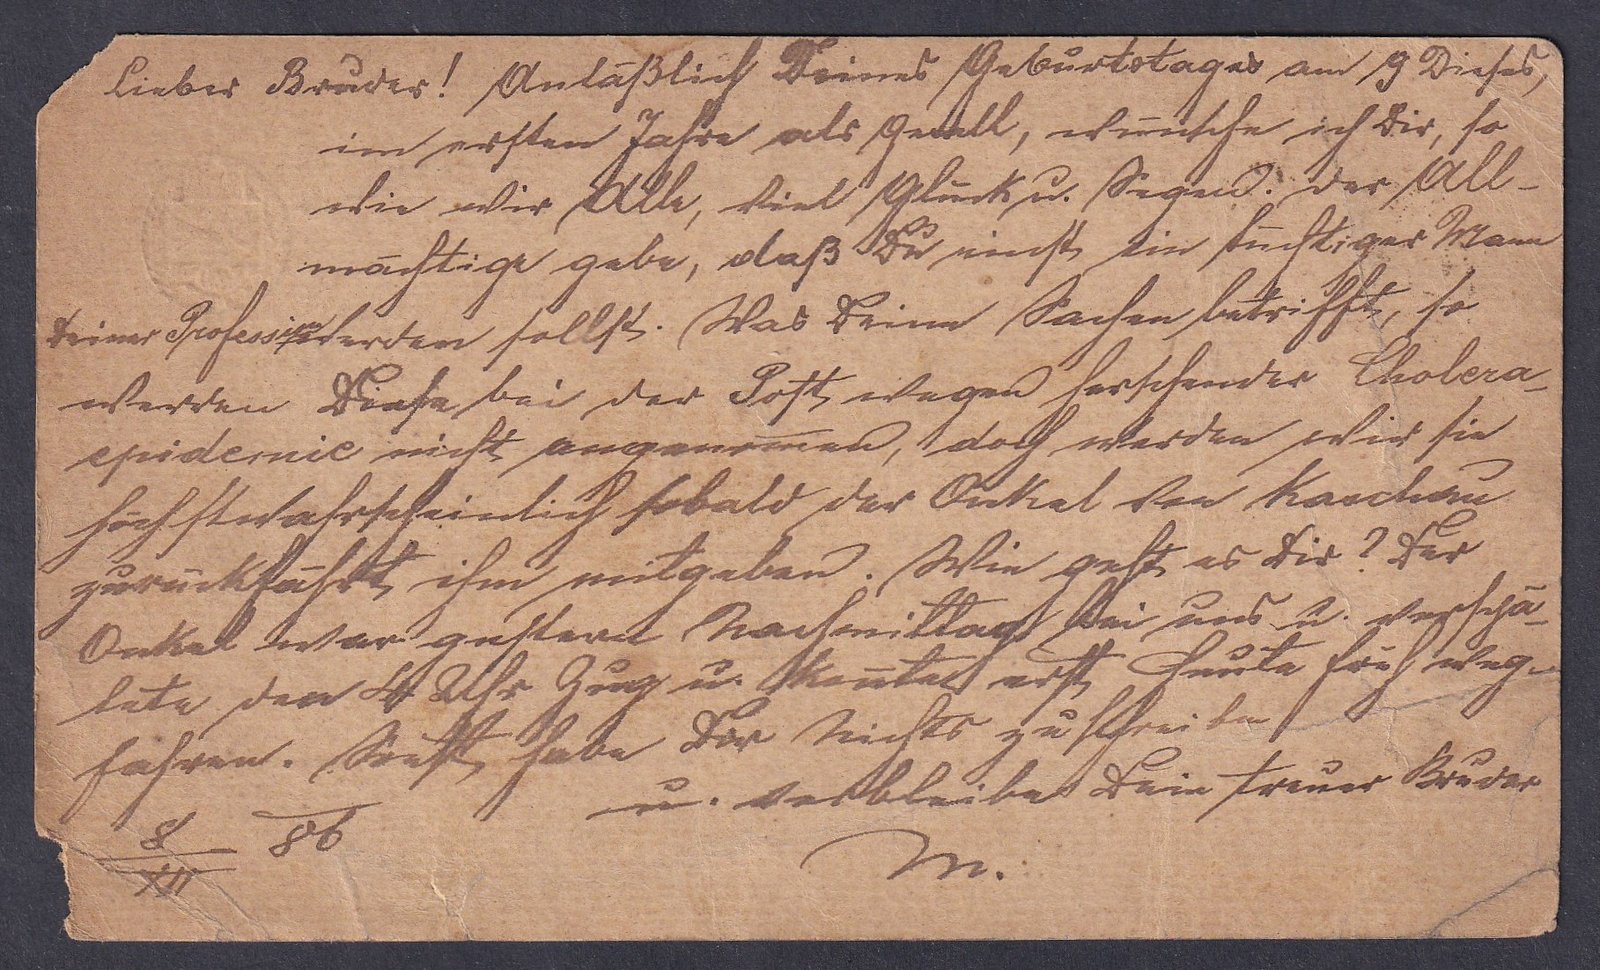 Lieber Bruder! Anläßlich Deines Geburtstages am 9 Dieses,
im ersten Jahre als Gesell, wünsche ich Dir, so
wie wir Alle, viel Glück u. Segen. der All-
mächtige gebe, daß Du einst ein tüchtiger Mann
Deiner Profession werden sollst. Was Deine Sachen betrifft, so
werden Diese bei der Post wegen herschender Cholera-
epidemie nicht angenom̄en, doch werden wir sie
höchstwahrscheinlich sobald der Onkel von Kaschau
zurückfährt ihm mitgeben. Wie geht es Dir? Der
Onkel war gestern Nachmittag bei uns u. verspä-
tete den 4 Uhr Zug u. kon̄te erst heute früh weg-
fahren. Sonst habe Dir Nichts zu schreiben
u. verbleibe Dein treuer Bruder
8/XII 86
M.